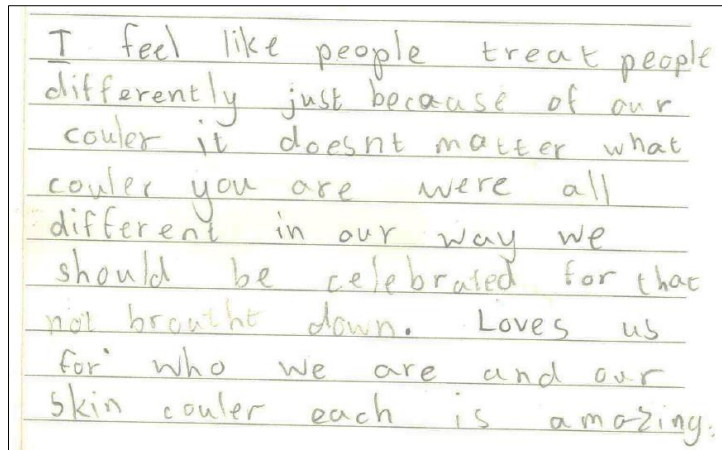 I feel like people treat people
differently just because of our
couler it doesnt matter what
couler you are were all
different in our way we
should be celebrated for that
not broutht down. Loves us
for who we are and our
skin couler each is amazing.